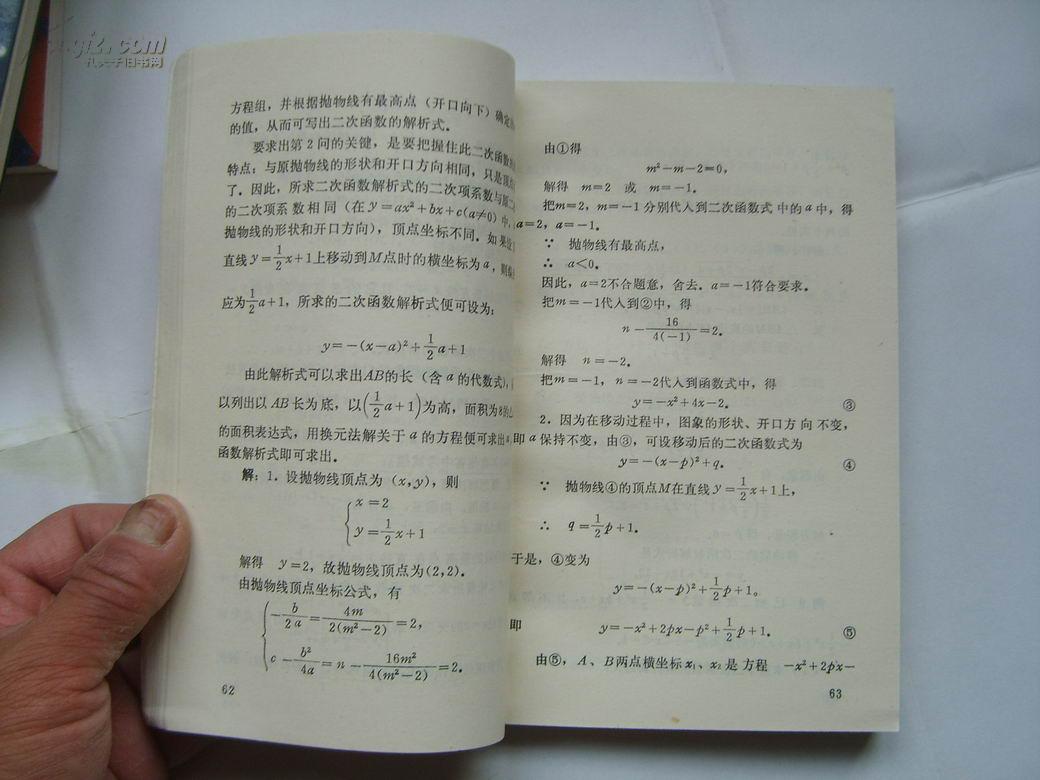 孔夫子旧书网
方程组，并根据抛物线有最高点（开口向下）确定
的值，从而可写出二次函数的解析式。
要求出第2问的关键，是要把握住此二次函数
特点：与原抛物线的形状和开口方向相同，只是顶
了。因此，所求二次函数解析式的二次项系数与原二
的二次项系数相同（在y=ax²+bx+c(a≠0)中，
抛物线的形状和开口方向），顶点坐标不同。如果
直线y=1/2x+1上移动到M点时的横坐标为a，则
应为1/2a+1，所求的二次函数解析式便可设为：
y=-(x-a)²+1/2a+1
由此解析式可以求出AB的长（含a的代数式），
以列出以AB长为底，以(1/2a+1)为高，面积为8的
的面积表达式，用换元法解关于a的方程便可求出
函数解析式即可求出。
解：1．设抛物线顶点为（x,y），则
{x=2
y=1/2x+1
解得 y=2，故抛物线顶点为(2,2)．
由抛物线顶点坐标公式，有
{-b/2a=4m/2(m²-2)=2，
c-b²/4a=n-16m²/4(m²-2)=2．
62
由①得
m²-m-2=0，
解得 m=2 或 m=-1．
把m=2，m=-1分别代入到二次函数式中的a中，得
a=2，a=-1．
∵ 抛物线有最高点，
∴ a<0．
因此，a=2不合题意，舍去．a=-1符合要求．
把m=-1代入到②中，得
n-16/4(-1)=2．
解得 n=-2．
把m=-1，n=-2代入到函数式中，得
y=-x²+4x-2． ③
2．因为在移动过程中，图象的形状、开口方向不变，
即a保持不变，由③，可设移动后的二次函数式为
y=-(x-p)²+q． ④
∵ 抛物线④的顶点M在直线y=1/2x+1上，
∴ q=1/2p+1．
于是，④变为
y=-(x-p)²+1/2p+1。
即 y=-x²+2px-p²+1/2p+1． ⑤
由⑤，A、B两点横坐标x₁、x₂是方程 -x²+2px-
63